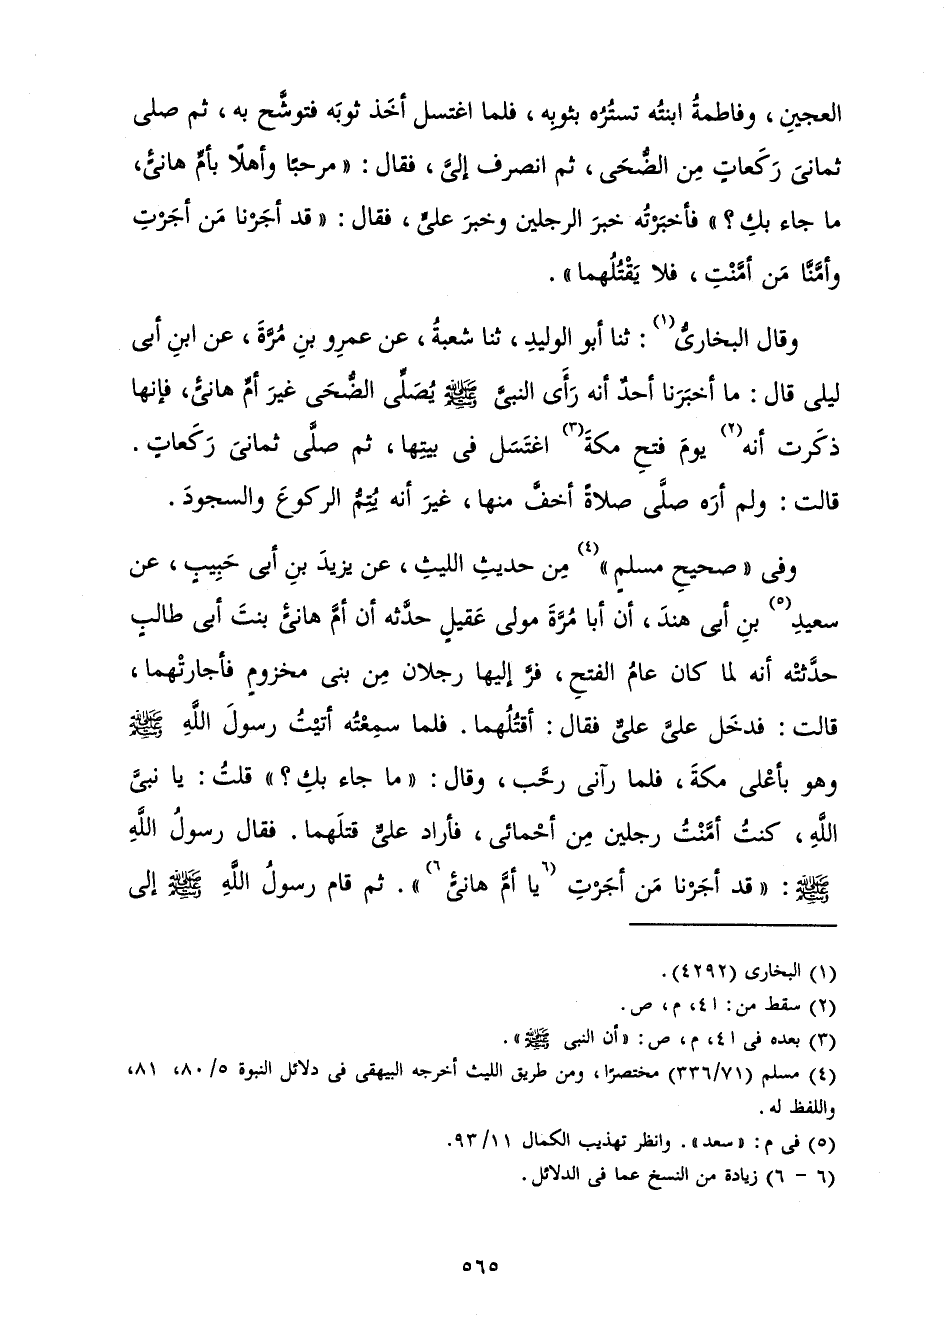 العجينِ ، وفاطمةُ ابنتُه تستُرُه بثوبِه ، فلما اغتسل أخَذ ثوبَه فتوشَّح به ، ثم صلى
ثمانىَ رَكَعاتٍ مِن الضُّحَى ، ثم انصرف إلىَّ ، فقال : « مرحبًا وأهلًا بأمِّ هانئٍ،
ما جاء بكِ ؟ » فأخبَرْتُه خبرَ الرجلين وخبرَ علىٍّ ، فقال : « قد أجَرْنا مَن أجَرْتِ
وأمَّنَّا مَن أمَّنْتِ ، فلا يَقْتُلْهما » .
وقال البخارىُّ(١) : ثنا أبو الوليدِ ، ثنا شعبةُ ، عن عمرِو بنِ مُرَّةَ ، عن ابنِ أبى
ليلى قال : ما أخبَرَنا أحدٌ أنه رَأَى النبىَّ ﷺ يُصَلِّى الضُّحَى غيرَ أمِّ هانئٍ، فإنها
ذكَرت أنه(٢) يومَ فتحِ مكةَ(٣) اغتَسَل فى بيتِها ، ثم صلَّى ثمانىَ رَكَعاتٍ .
قالت : ولم أرَه صلَّى صلاةً أخفَّ منها ، غيرَ أنه يُتِمُّ الركوعَ والسجودَ .
وفى « صحيحِ مسلمٍ »(٤) مِن حديثِ الليثِ ، عن يزيدَ بنِ أبى حَبِيبٍ ، عن
سعيدِ(٥) بنِ أبى هندَ ، أن أبا مُرَّةَ مولى عَقيلٍ حدَّثه أن أمَّ هانئٍ بنتَ أبى طالبٍ
حدَّثتْه أنه لما كان عامُ الفتحِ ، فرَّ إليها رجلان مِن بنى مخزومٍ فأجارتْهما ،
قالت : فدخَل علىَّ علىٌّ فقال : أقتُلُهما . فلما سمِعْتُه أتيْتُ رسولَ اللَّهِ ﷺ
وهو بأعْلى مكةَ ، فلما رآنى رحَّب ، وقال : « ما جاء بكِ ؟ » قلتُ : يا نبىَّ
اللَّهِ ، كنتُ أمَّنْتُ رجلين مِن أحْمائى ، فأراد علىٌّ قتلَهما . فقال رسولُ اللَّهِ
ﷺ : « قد أجَرْنا مَن أجَرْتِ (٦يا أمَّ هانئٍ٦) » . ثم قام رسولُ اللَّهِ ﷺ إلى
(١) البخارى (٤٢٩٢) .
(٢) سقط من : ٤١، م ، ص .
(٣) بعده فى ٤١، م ، ص : « أن النبى ﷺ » .
(٤) مسلم (٣٣٦/٧١) مختصرًا ، ومن طريق الليث أخرجه البيهقى فى دلائل النبوة ٥/ ٨٠، ٨١،
واللفظ له .
(٥) فى م : « سعد » . وانظر تهذيب الكمال ١١/ ٩٣.
(٦ - ٦) زيادة من النسخ عما فى الدلائل .
٥٦٥